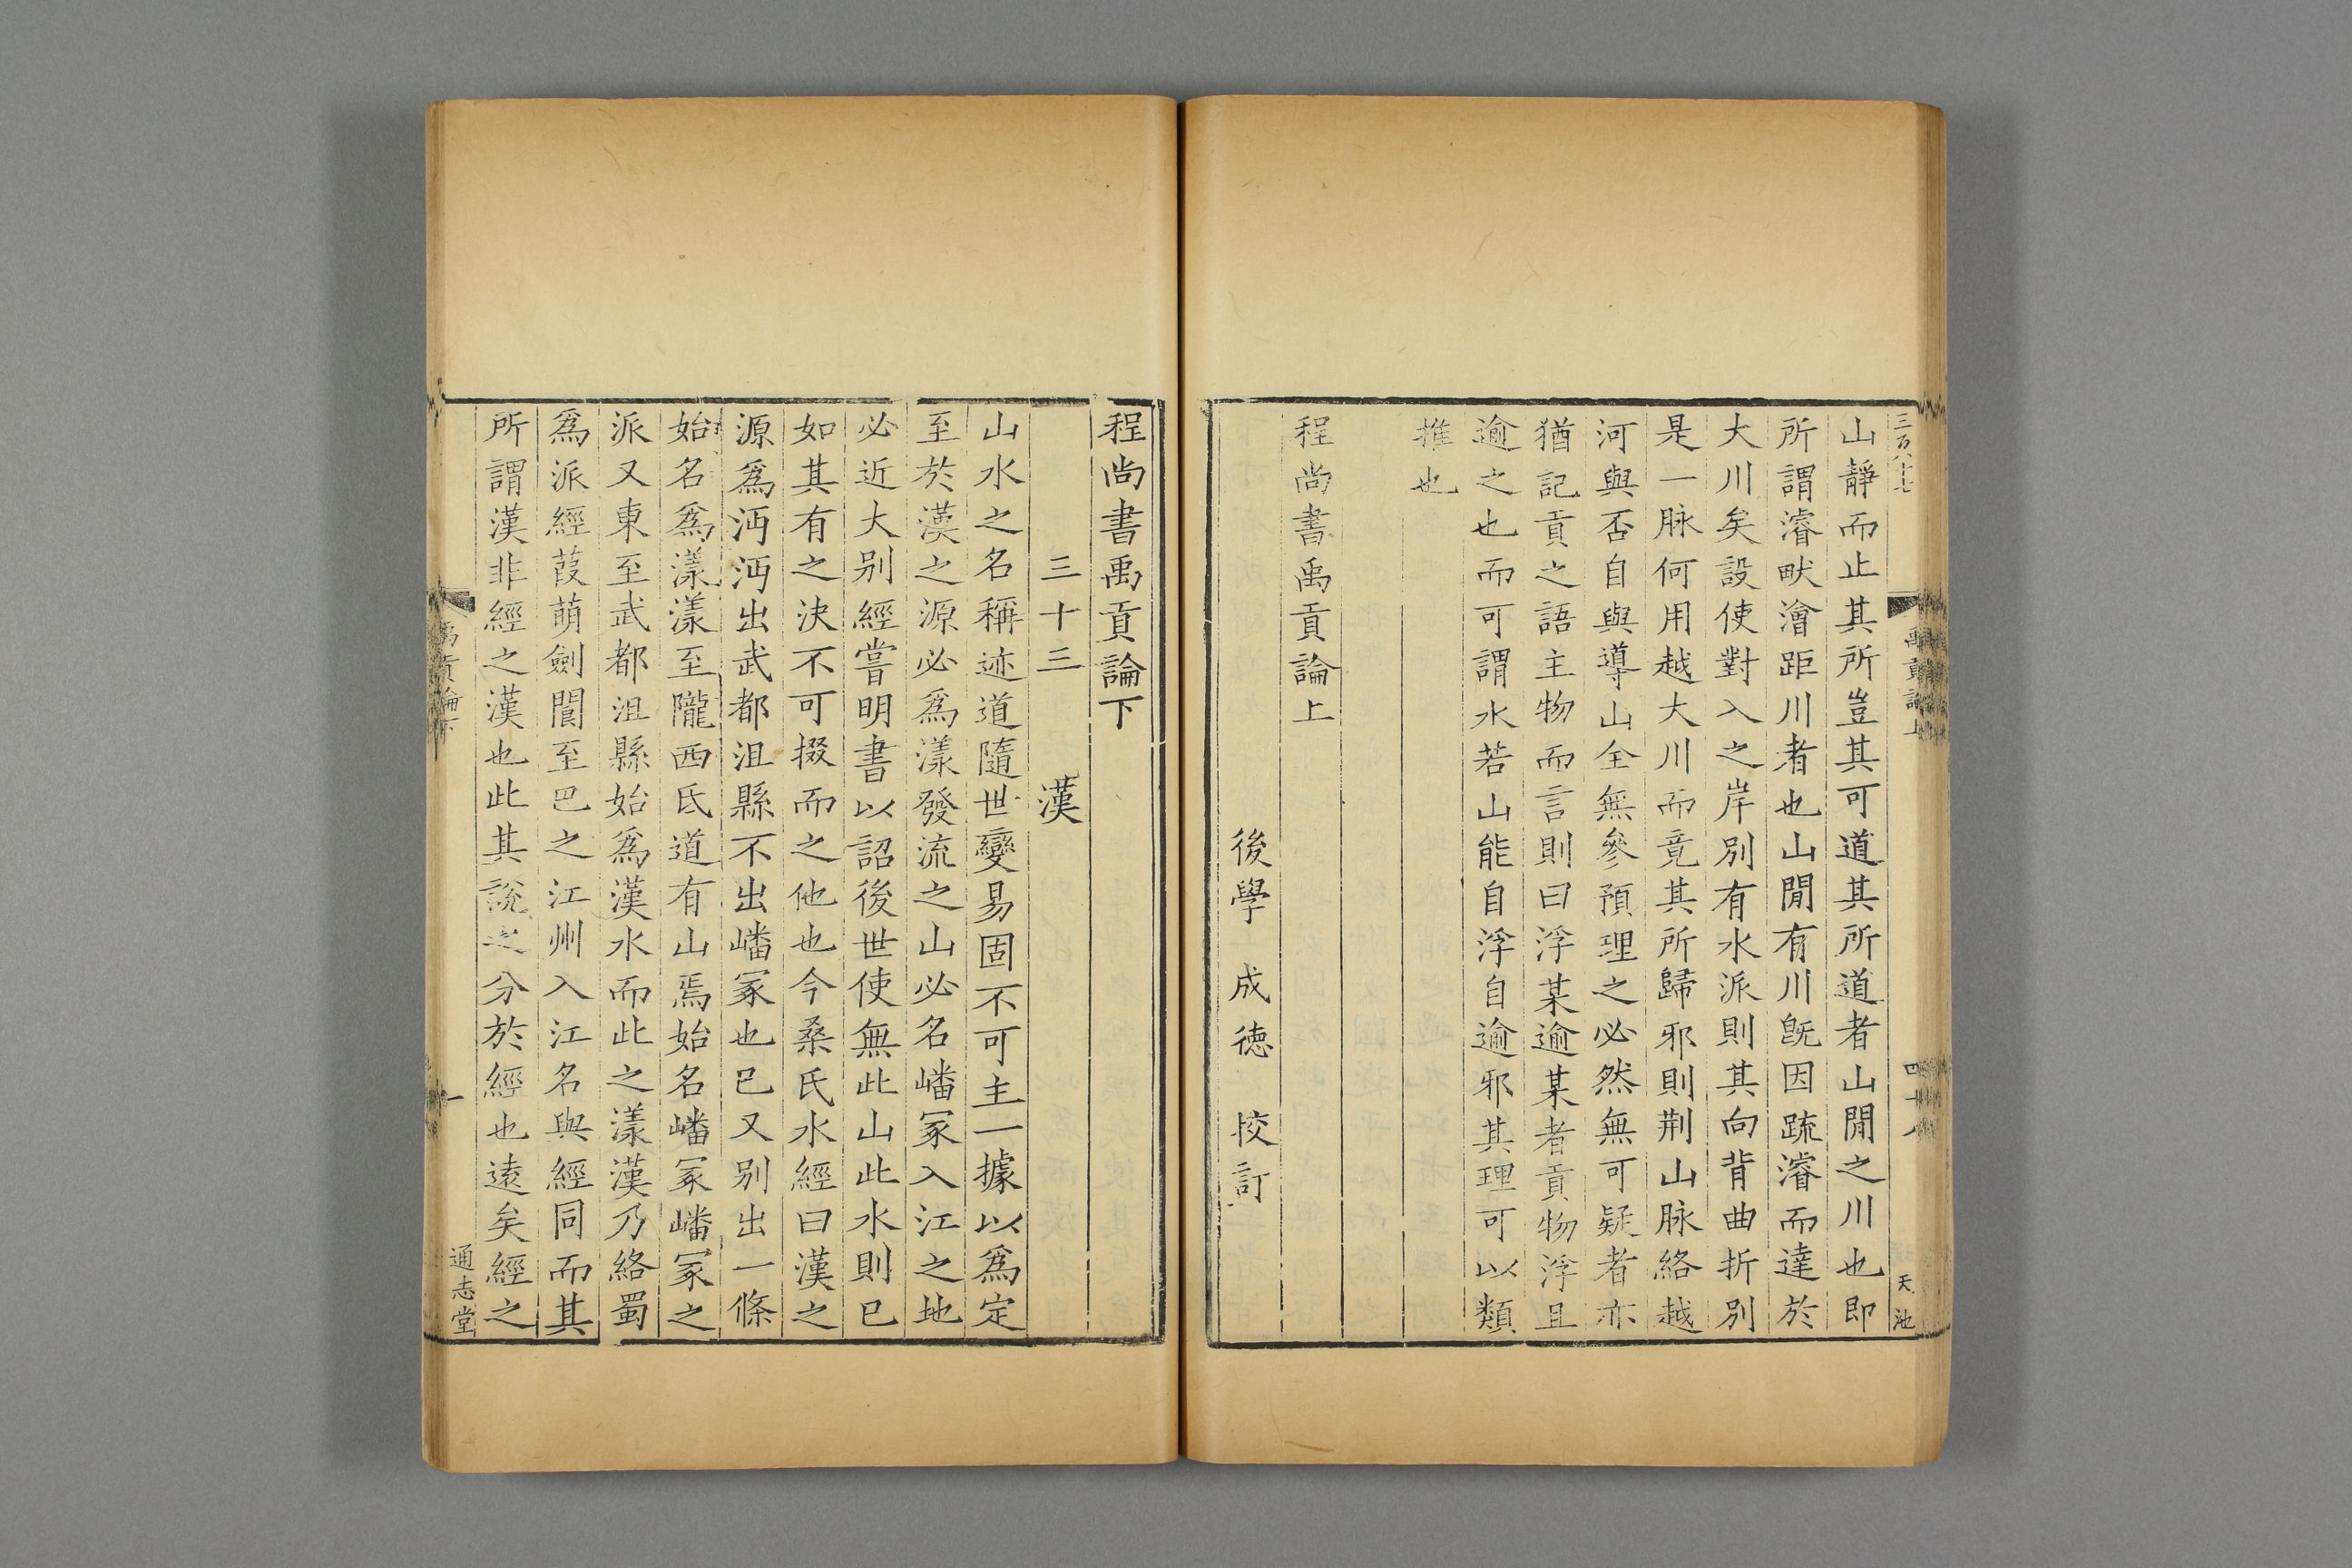 三百八十七
禹貢論上
四十八
天池
山靜而止其所豈其可道其所道者山閒之川也即
所謂濬畎澮距川者也山閒有川旣因疏濬而達於
大川矣設使對入之岸別有水派則其向背曲折別
是一脉何用越大川而竟其所歸邪則荆山脉絡越
河與否自與導山全無參預理之必然無可疑者亦
猶記貢之語主物而言則曰浮某逾某者貢物浮且
逾之也而可謂水若山能自浮自逾邪其理可以類
推也
程尚書禹貢論上
後學 成德 挍訂
程尚書禹貢論下
三十三 漢
山水之名稱迹道隨世變易固不可主一據以爲定
至於漢之源必爲漾發流之山必名嶓冢入江之地
必近大别經嘗明書以詔後世使無此山此水則已
如其有之決不可掇而之他也今桑氏水經曰漢之
源爲沔沔出武都沮縣不出嶓冢也已又别出一條
始名爲漾漾至隴西氐道有山焉始名嶓冢嶓冢之
派又東至武都沮縣始爲漢水而此之漾漢乃絡蜀
爲派經葭萌劍閬至巴之江州入江名與經同而其
所謂漢非經之漢也此其說之分於經也遠矣經之
禹貢論下
一
通志堂